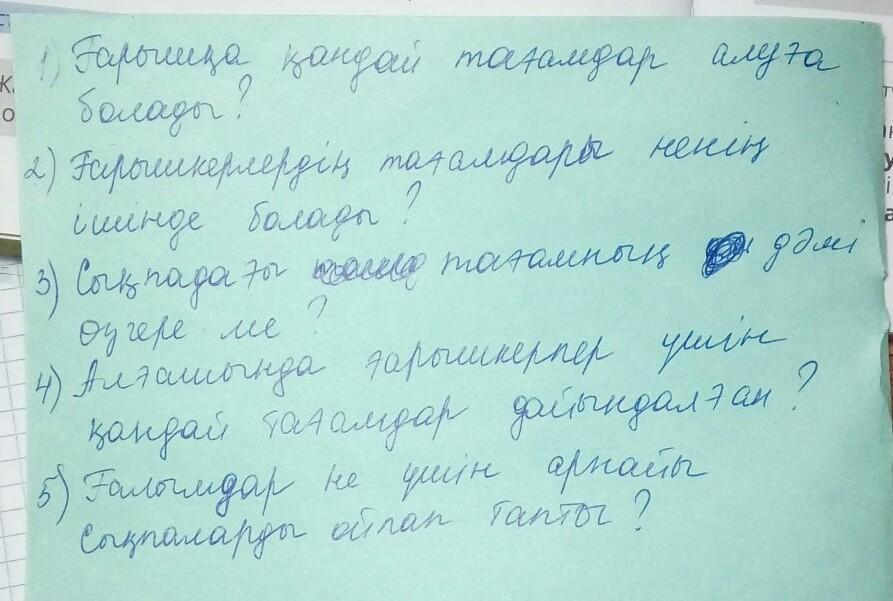 1) Ғарышқа қандай тағамдар алуға
болады?
2) Ғарышкерлердің тағамдары ненің
ішінде болады?
3) Сықпадағы тағамның дәмі
өзгере ме?
4) Алғашында ғарышкерлер үшін
қандай тағамдар дайындалған?
5) Ғалымдар не үшін арнайы
сықпаларды ойлап тапты?